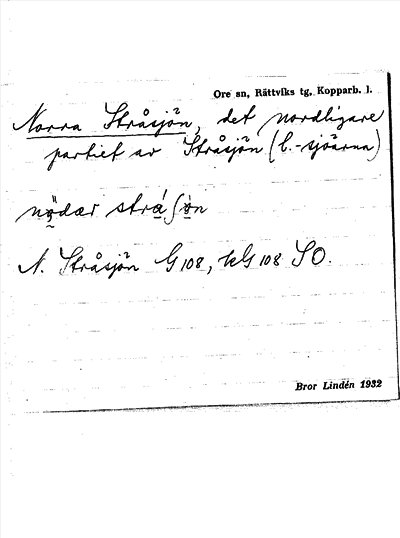 Ore sn, Rättviks tg, Kopparb. l.
Norra Stråsjön, det nordligare
partiet av Stråsjön (l.-sjöarna)
N. Stråsjön G 108, HG 108 SO.
Bror Lindén 1932